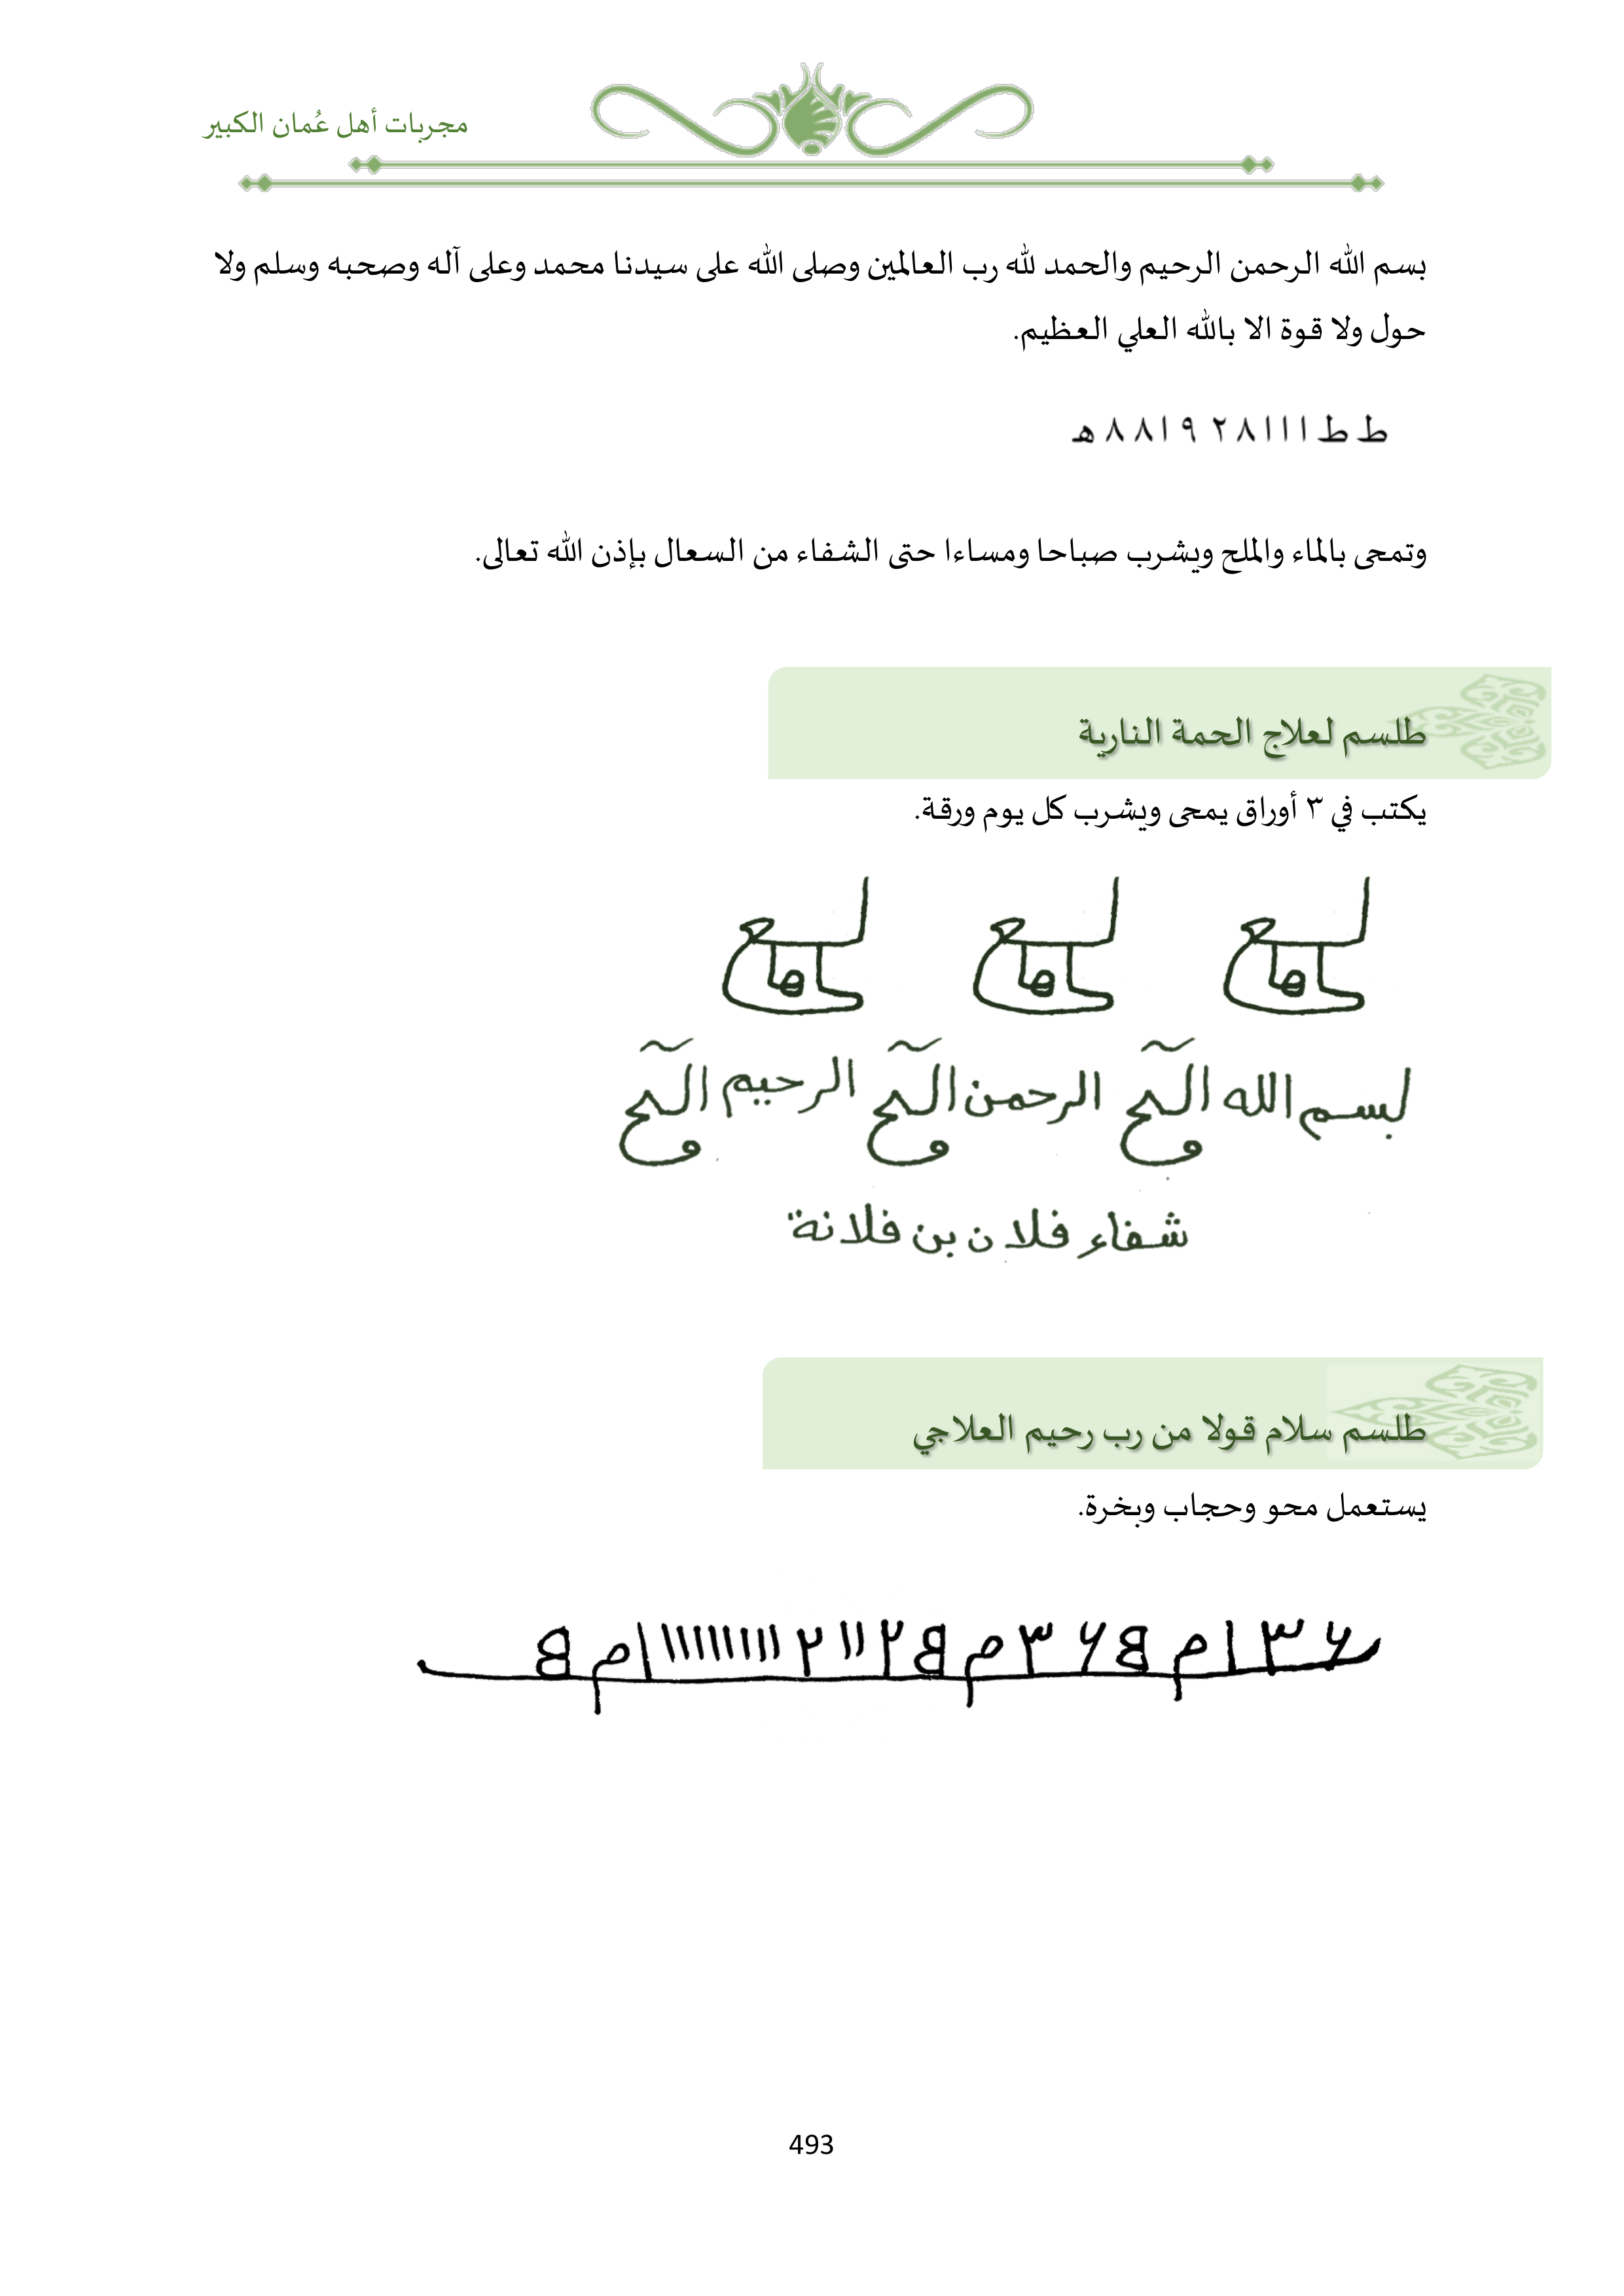 مجربات أهل عُمان الكبير
بسم الله الرحمن الرحيم والحمد لله رب العالمين وصلى الله على سيدنا محمد وعلى آله وصحبه وسلم ولا
حول ولا قوة الا بالله العلي العظيم.
ط ط ا ا ا ٨ ٢ ٩ ١ ٨ ٨ ه
وتمحى بالماء والملح ويشرب صباحا ومساءا حتى الشفاء من السعال بإذن الله تعالى.
طلسم لعلاج الحمة النارية
يكتب في ٣ أوراق يمحى ويشرب كل يوم ورقة.
بسم الله الرحمن الرحيم
شفاء فلان بن فلانة
طلسم سلام قولا من رب رحيم العلاجي
يستعمل محو وحجاب وبخرة.
493